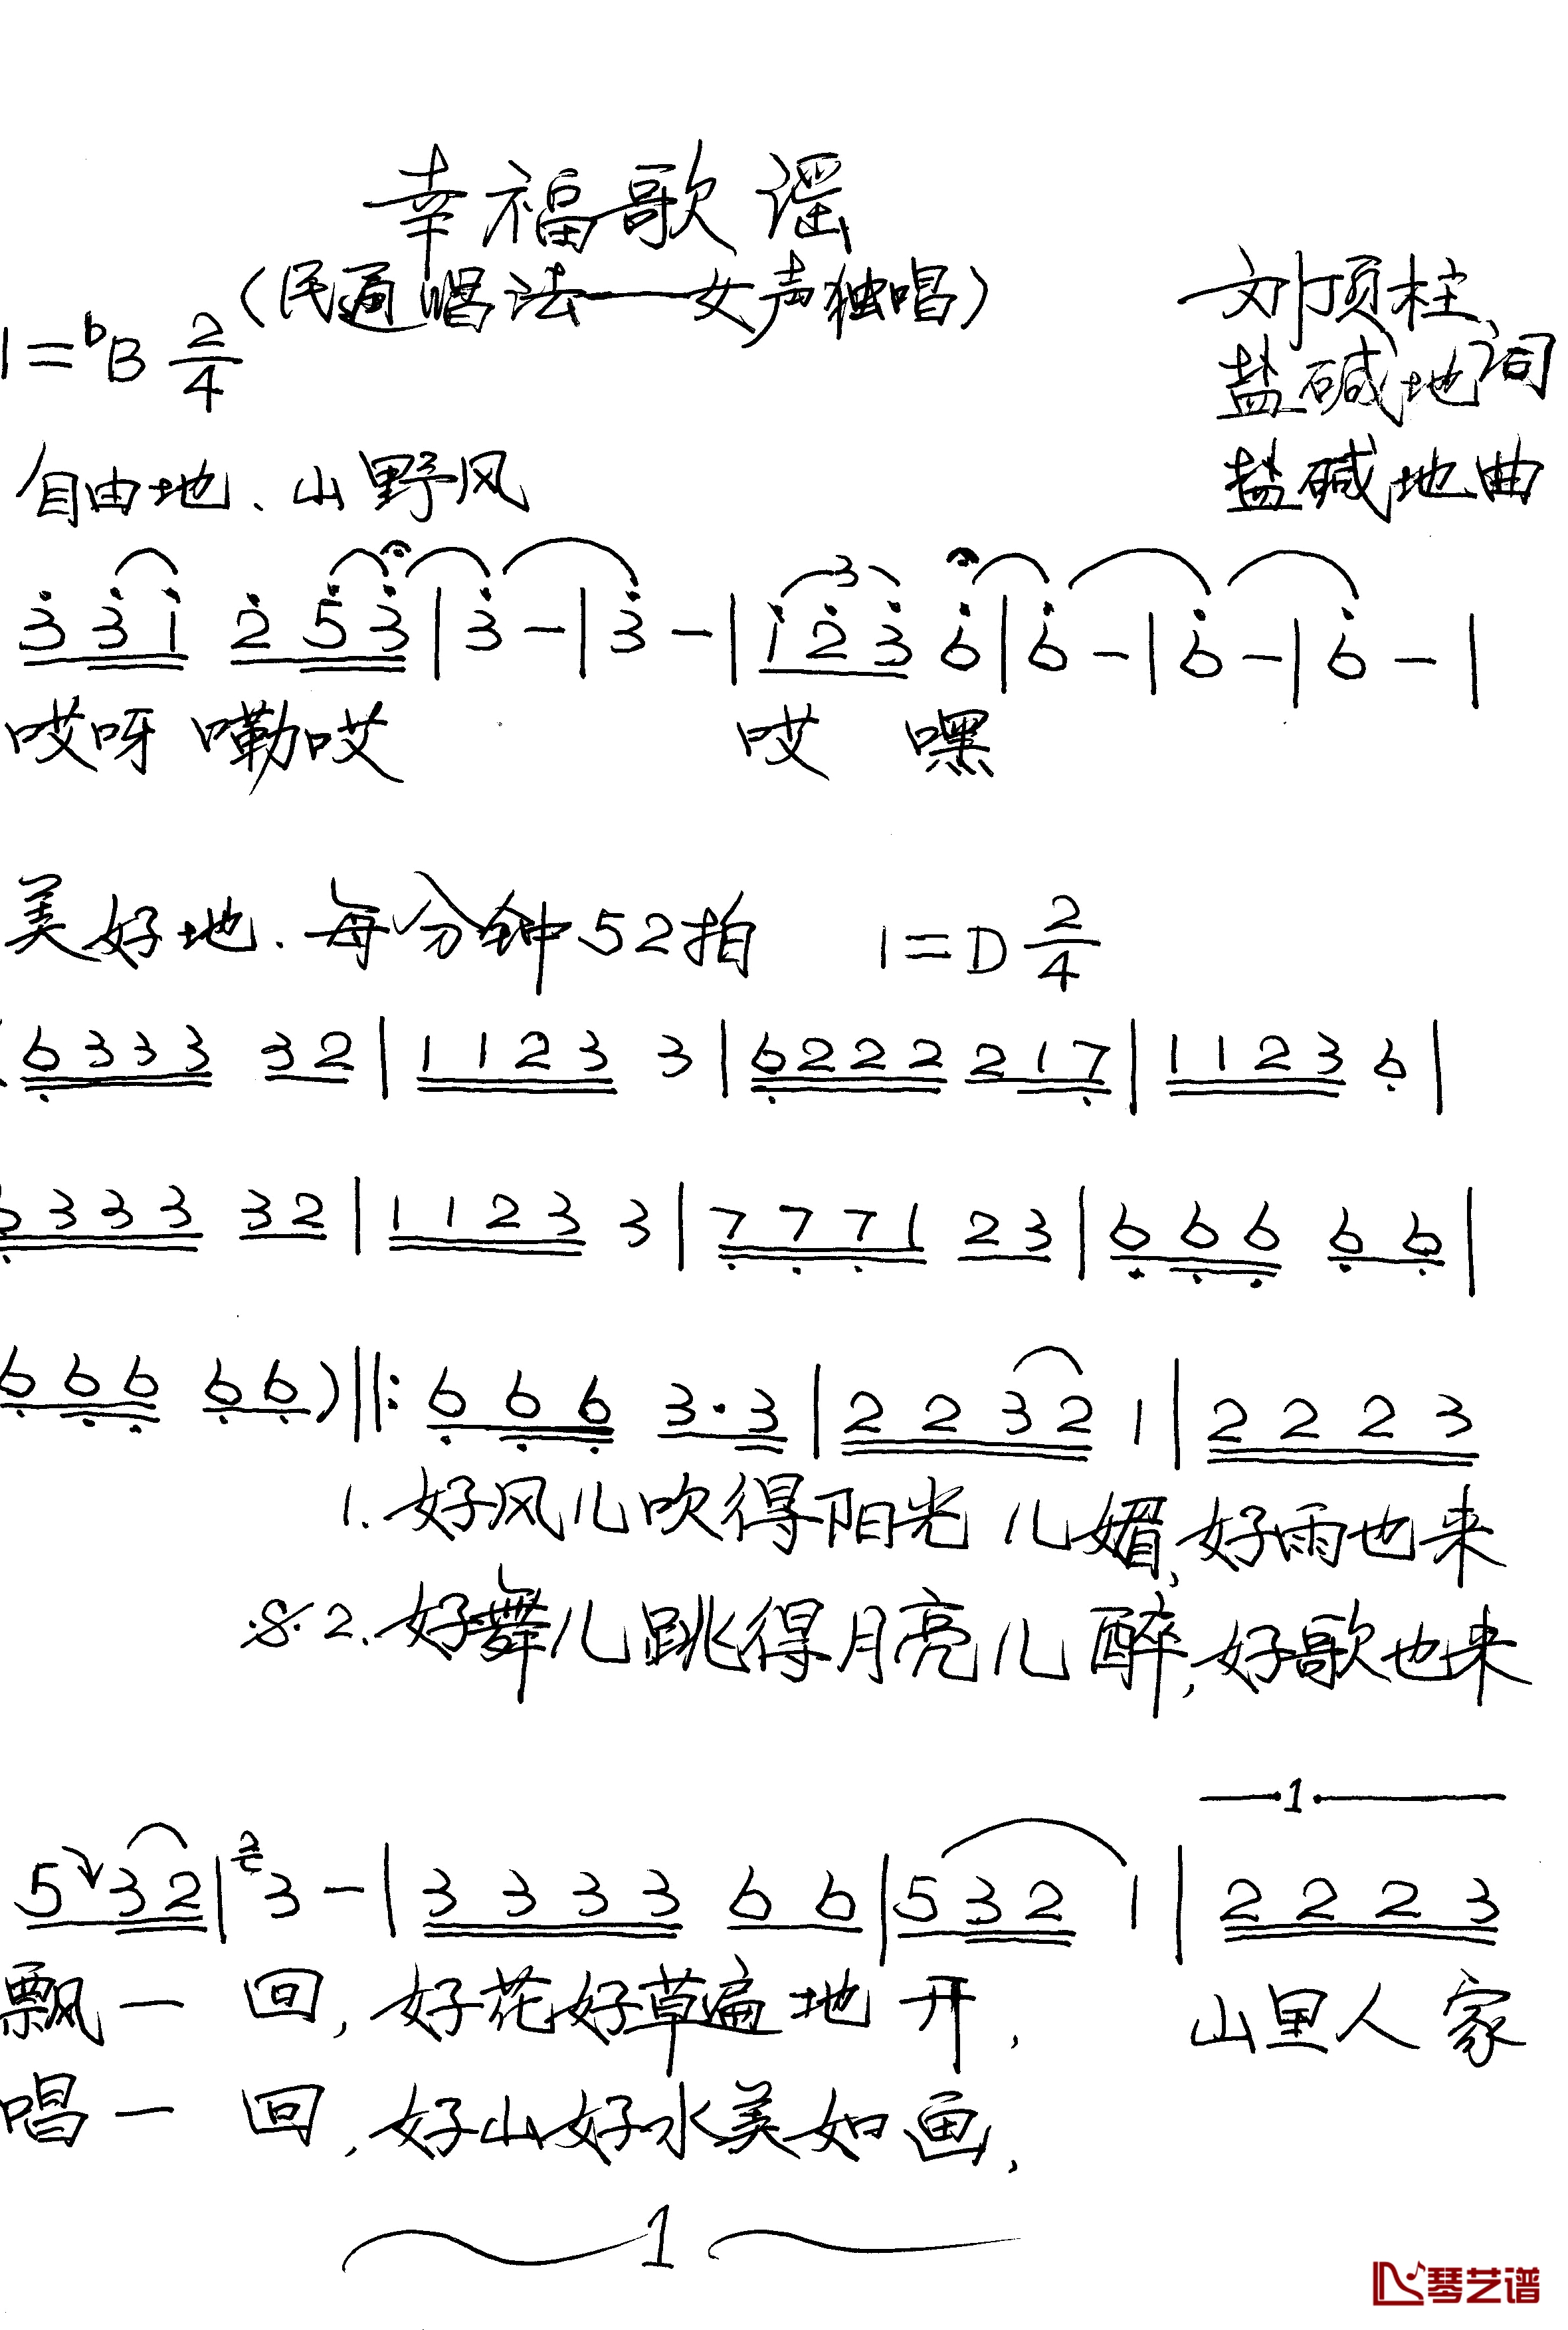 幸福歌谣
（民通唱法——女声独唱）
刘顶柱、
1=♭B 2/4
盐碱地词
自由地、山野风
盐碱地曲
3 3 1 2 5 3 | 3 - | 3 - | 1 2 3 6 | 6 - | 6 - | 6 - |
哎呀 嘞哎 哎 嘿
美好地、每分钟52拍 1=D 2/4
(6333 32 | 1123 3 | 6222 217 | 1123 6 |
6333 32 | 1123 3 | 7771 23 | 666 66 |
666 66) ||: 666 3·3 | 2232 1 | 2223
1. 好风儿吹得阳光儿媚，好雨也来
𝄋 2. 好舞儿跳得月亮儿醉，好歌也来
1
5 32 | 3 - | 3333 66 | 532 1 | 2223
飘一 回，好花好草遍地开， 山里人家
唱一 回，好山好水美如画，
1
琴艺谱